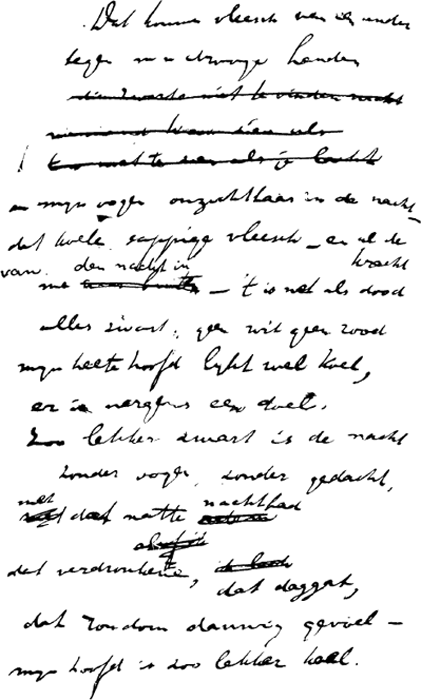 Dat koume vleesch van een ander
tegen mn droge handen
niemand kan zien als
en mijn oogen onzichtbaar in de nacht –
dat koele sappige vleesch – en al de kracht
van me den nacht in – 't is net als dood
alles zwart, geen wit geen rood
mijn heete hoofd lijkt wel koel,
er is nergens een doel.
Zoo lekker zwart is de nacht
zonder oogen, zonder gedacht,
met dat natte nachtbad
dat verdronkene, dat daggat,
dat rondom dauwig gevoel –
mijn hoofd is zoo lekker koel.